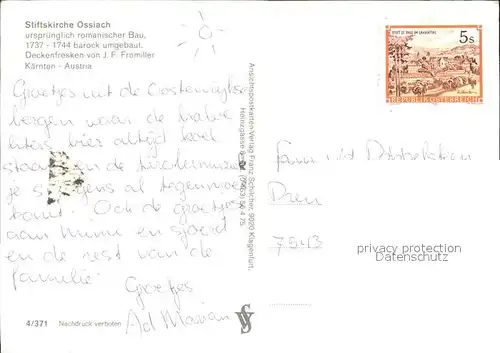 Stiftskirche Ossiach
ursprünglich romanischer Bau,
1737 - 1744 barock umgebaut.
Deckenfresken von J. F. Fromiller
Kärnten - Austria
Groetjes uit de Oostenrijkse
bergen waar de halve
liters bier altijd koel
staan en de
je 's morgens al tegemoet
komt. Ook de groetjes
aan Mimi en Sjoerd
en de rest van de
familie.
Groetjes
Ad Marian
4/371 Nachdruck verboten
Ansichtspostkarten-Verlag Franz Schilcher, 9020 Klagenfurt,
Heinzgasse
STIFT ST. PAUL IM LAVANTTAL
5s
REPUBLIK ÖSTERREICH
Fam
7943
privacy protection
Datenschutz